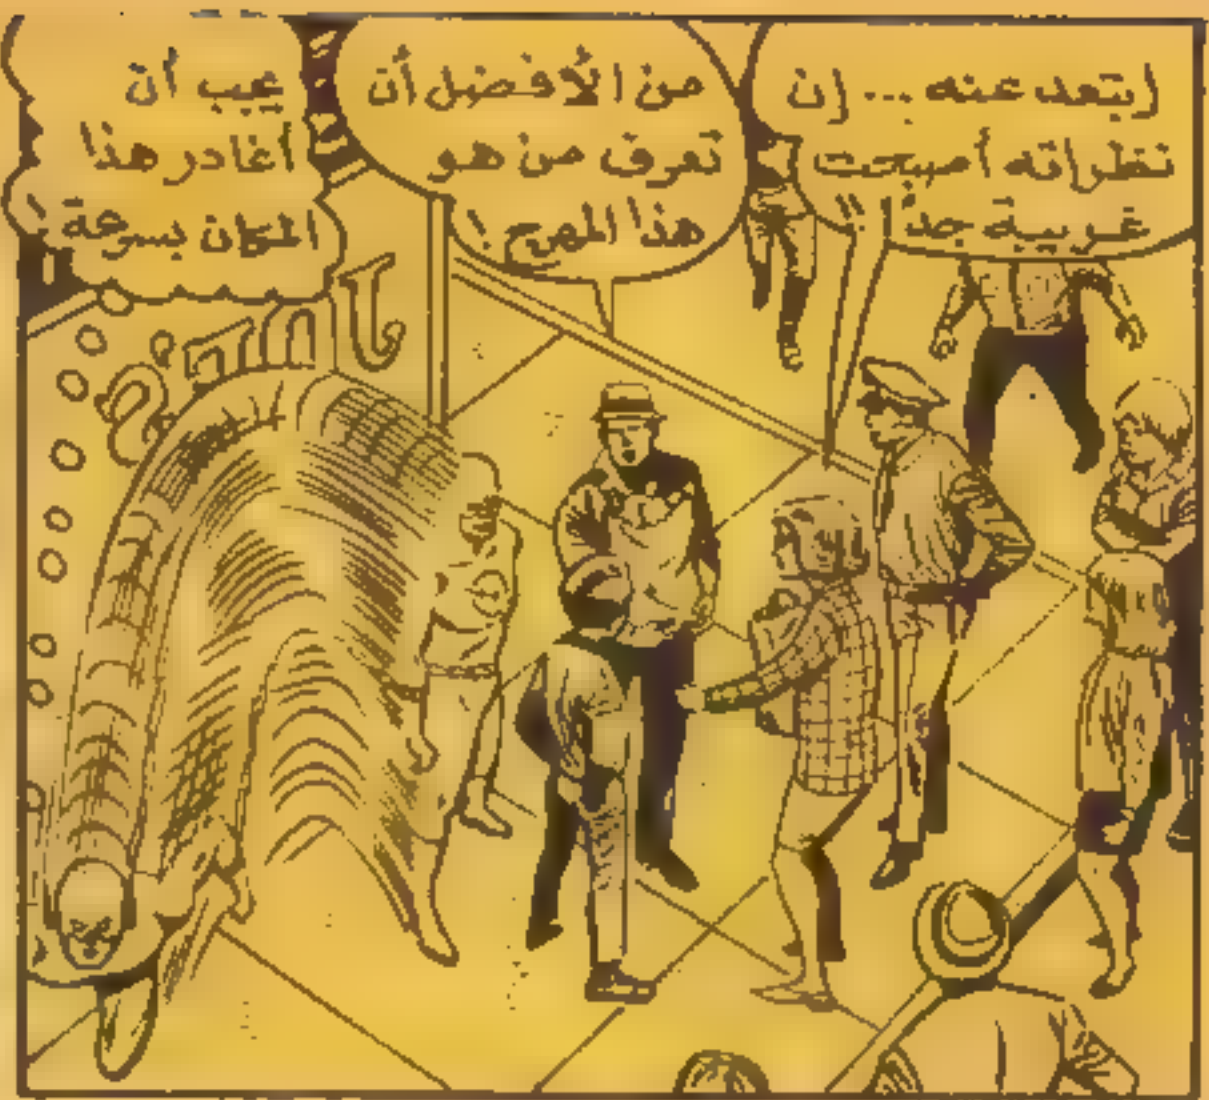 إبتعد عنه ... إن
نظراته أصبحت
غريبة جداً !!
من الأفضل أن
نعرف من هو
هذا المهرج !
يجب أن
أغادر هذا
المكان بسرعة !